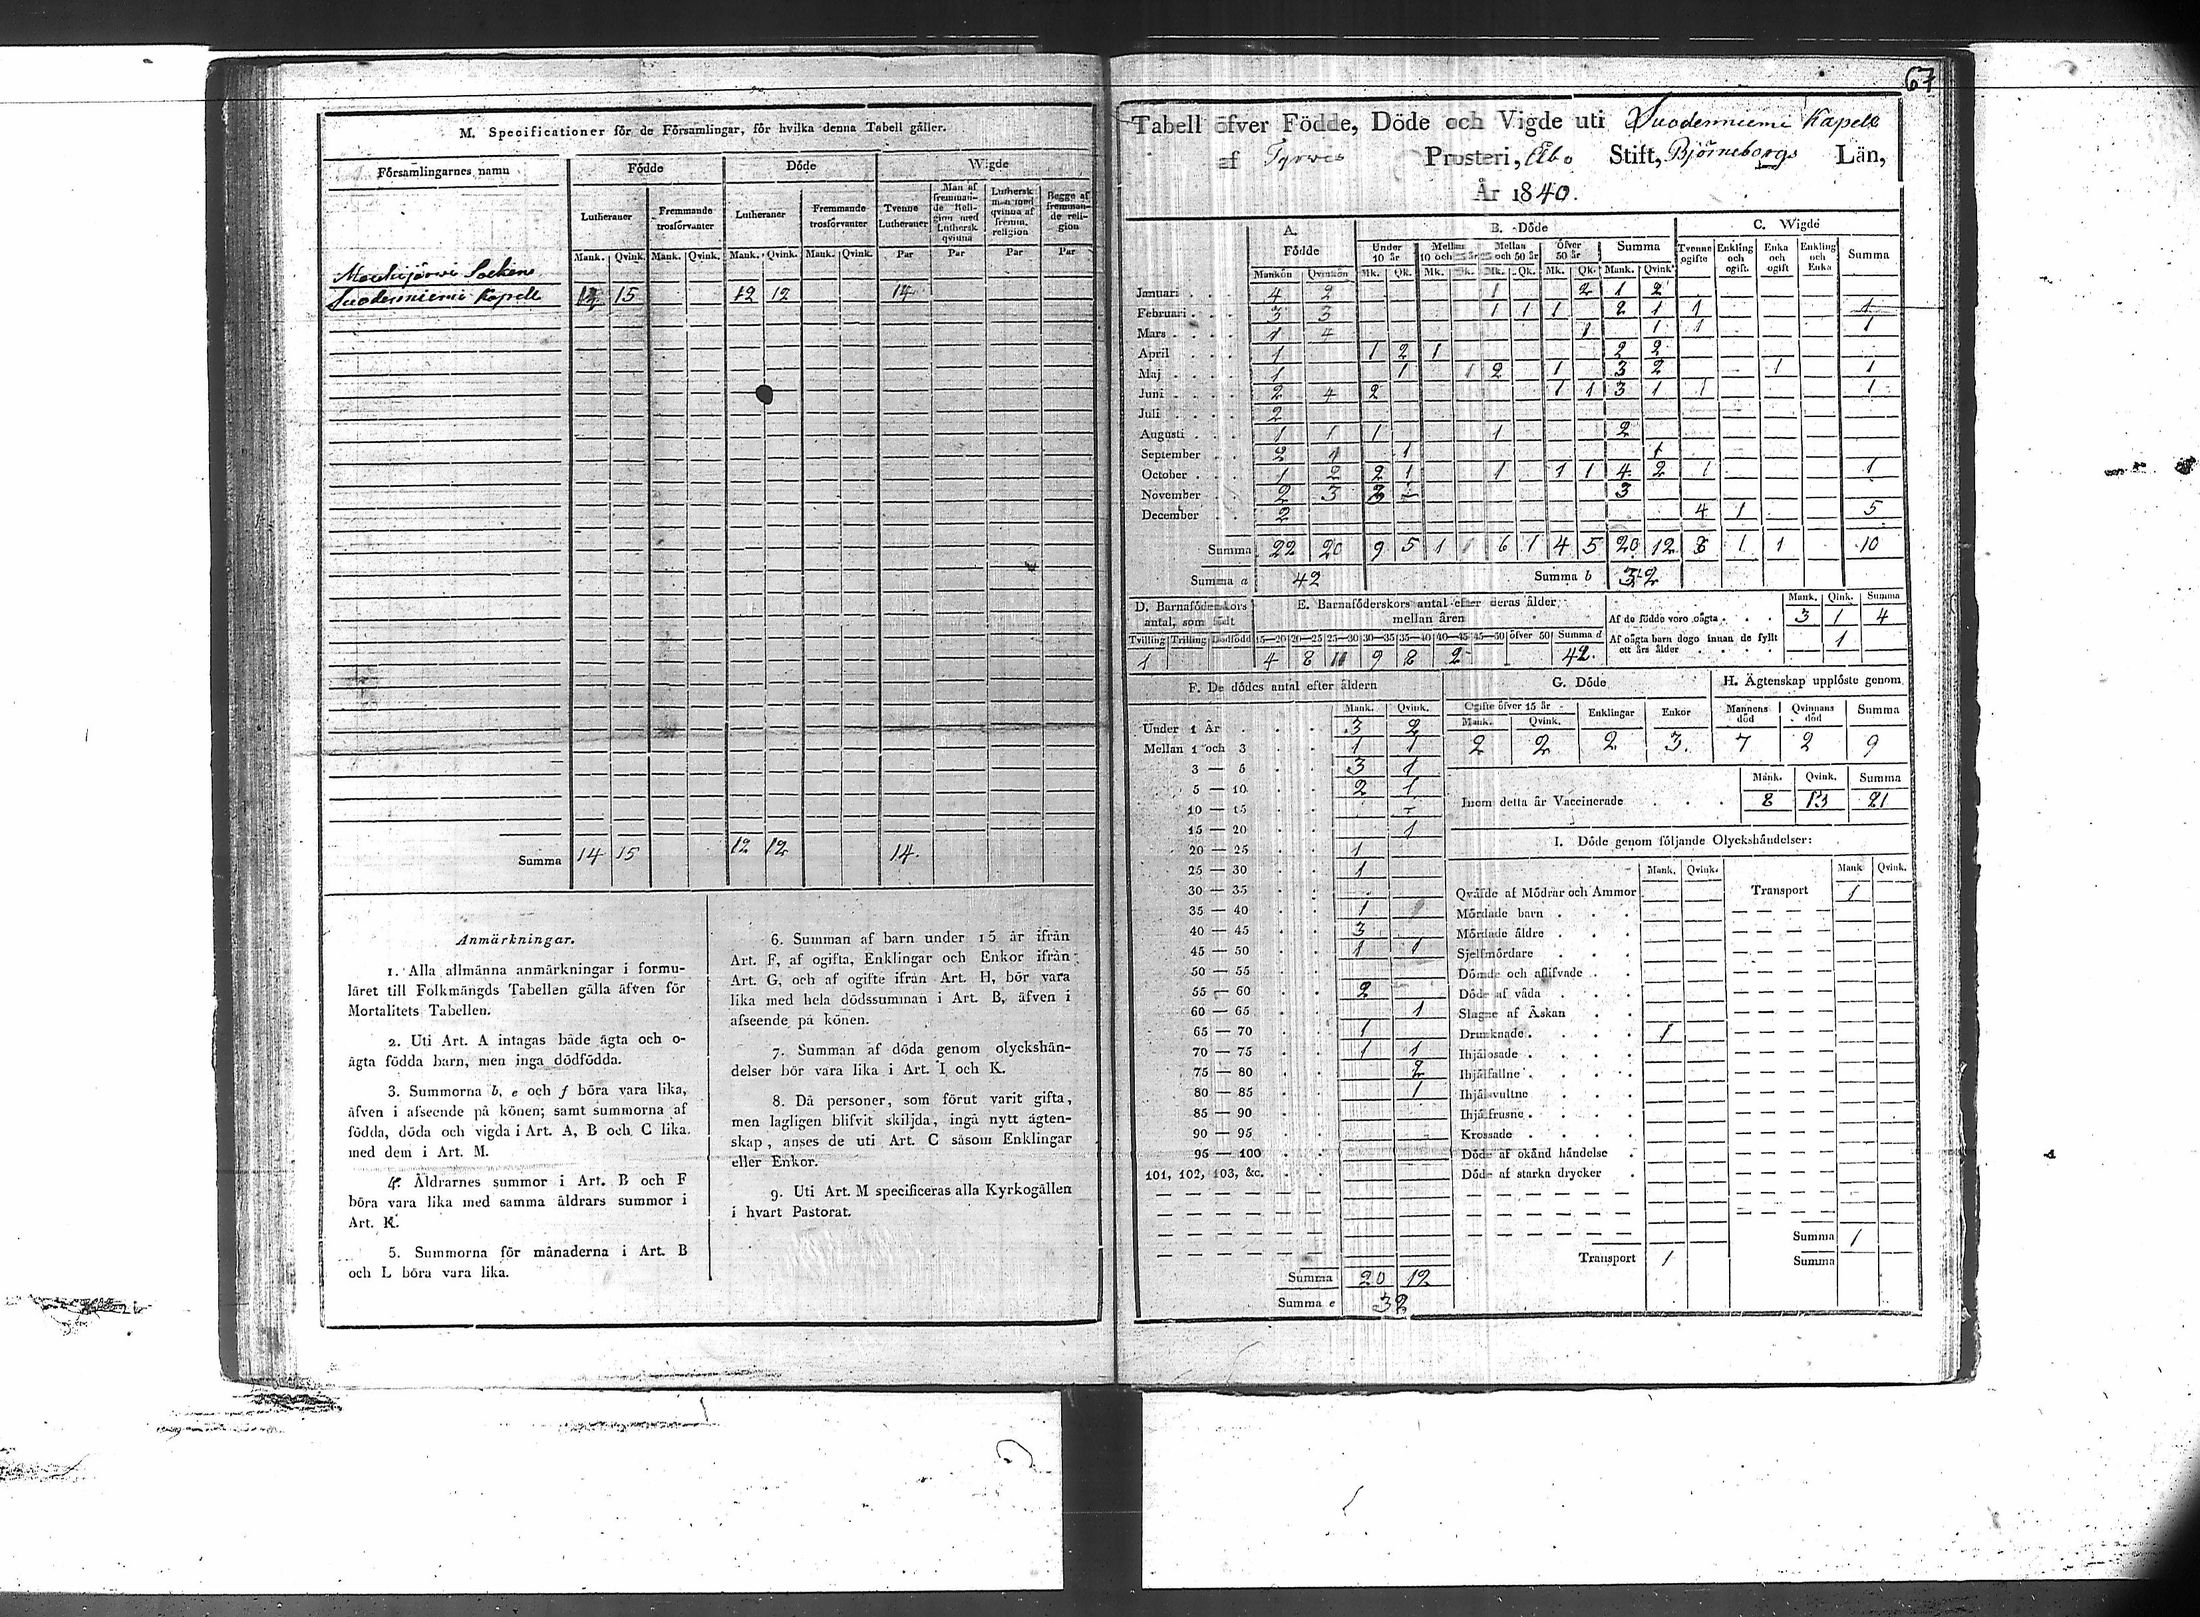 M. Specificationer för de Församlingar, för hvilka denna Tabell gäller.
Församlingarnes namn Födde Döde Wigde
Lutheraner Fremmande trosförvanter Lutheraner Fremmande trosförvanter Tvenne Lutheraner Man af fremmande Religion med Luthersk qvinna Luthersk man med qvinna af fremm. religion Begge af fremmande religion
Mank. Qvink. Mank. Qvink. Mank. Qvink. Mank. Qvink. Par Par Par Par
Mouhijärvi Socken
Suodenniemi Kapell 14 15 12 12 14
Summa 14 15 12 12 14.
Anmärkningar.
1. Alla allmänna anmärkningar i formu-
läret till Folkmängds Tabellen gälla äfven för
Mortalitets Tabellen.
2. Uti Art. A intagas både ägta och o-
ägta födda barn, men inga dödfödda.
3. Summorna b, e och f böra vara lika,
äfven i afseende på könen; samt summorna af
födda, döda och vigda i Art. A, B och C lika
med dem i Art. M.
4. Åldrarnes summor i Art. B och F
böra vara lika med samma åldrars summor i
Art. K.
5. Summorna för månaderna i Art. B
och L böra vara lika.
6. Summan af barn under 15 år ifrån
Art. F, af ogifta, Enklingar och Enkor ifrån
Art. G, och af ogifte ifrån Art. H, bör vara
lika med hela dödssumman i Art. B, äfven i
afseende på könen.
7. Summan af döda genom olyckshän-
delser bör vara lika i Art. I och K.
8. Då personer, som förut varit gifta,
men lagligen blifvit skiljda, ingå nytt ägten-
skap, anses de uti Art. C såsom Enklingar
eller Enkor.
9. Uti Art. M specificeras alla Kyrkogällen
i hvart Pastorat.
67
Tabell öfver Födde, Döde och Vigde uti Suodenniemi Kapell
af Tyrvis Prosteri, Åbo Stift, Björneborgs Län,
År 1840.
A. Födde B. Döde C. Wigde
Under 10 år Mellan 10 och 25 år Mellan 25 och 50 år Öfver 50 år Summa Tvenne ogifte Enkling och ogift. Enka och ogift Enkling och Enka Summa
Mankön Qvinkön Mk. Qk. Mk. Qk. Mk. Qk. Mk. Qk. Mank. Qvink.
Januari 4 2 1 2 1 2
Februari 3 3 1 1 1 2 1 1 1
Mars 1 4 1 1 1 1
April 1 1 2 1 2 2
Maj 1 1 1 2 1 3 2 1 1
Juni 2 4 2 1 1 3 1 1 1
Juli 2
Augusti 1 1 1 1 2
September 2 1 1 1
October 1 2 2 1 1 1 1 4 2 1 1
November 2 3 3 3
December 2 4 1 5
Summa 22 20 9 5 1 1 6 1 4 5 20 12 8 1 1 10
Summa a 42 Summa b 32
D. Barnaföderskors antal, som födt E. Barnaföderskors antal efter deras ålder, mellan åren
Tvilling Trilling Dödfödd 15—20 20—25 25—30 30—35 35—40 40—45 45—50 öfver 50 Summa d
1 4 8 11 9 8 2 42.
Mank. Qink. Summa
Af de födde voro oägta 3 1 4
Af oägta barn dogo innan de fyllt ett års ålder 1
F. De dödes antal efter åldern
Mank. Qvink.
Under 1 År 3 2
Mellan 1 och 3 1 1
3 — 5 3 1
5 — 10 2 1
10 — 15
15 — 20 1
20 — 25 1
25 — 30 1
30 — 35
35 — 40 1
40 — 45 3
45 — 50 1 1
50 — 55
55 — 60 2
60 — 65 1
65 — 70 1
70 — 75 1 1
75 — 80 2
80 — 85 1
85 — 90
90 — 95
95 — 100
101, 102, 103, &c.
Summa 20 12
Summa e 32
G. Döde H. Ägtenskap upplöste genom
Ogifte öfver 15 år Enklingar Enkor Mannens död Qvinnans död Summa
Mank. Qvink.
2 2 2 3. 7 2 9
Mank. Qvink. Summa
Inom detta år Vaccinerade 8 13 21
I. Döde genom följande Olyckshändelser:
Mank. Qvink. Mank Qvink.
Qväfde af Mödrar och Ammor Transport 1
Mördade barn
Mördade äldre
Sjelfmördare
Dömde och aflifvade
Döde af våda
Slagne af Åskan
Drunknade 1
Ihjälosade
Ihjälfallne
Ihjälsvultne
Ihjälfrusne
Krossade
Döde af okänd händelse
Döde af starka drycker
Summa 1
Transport 1 Summa